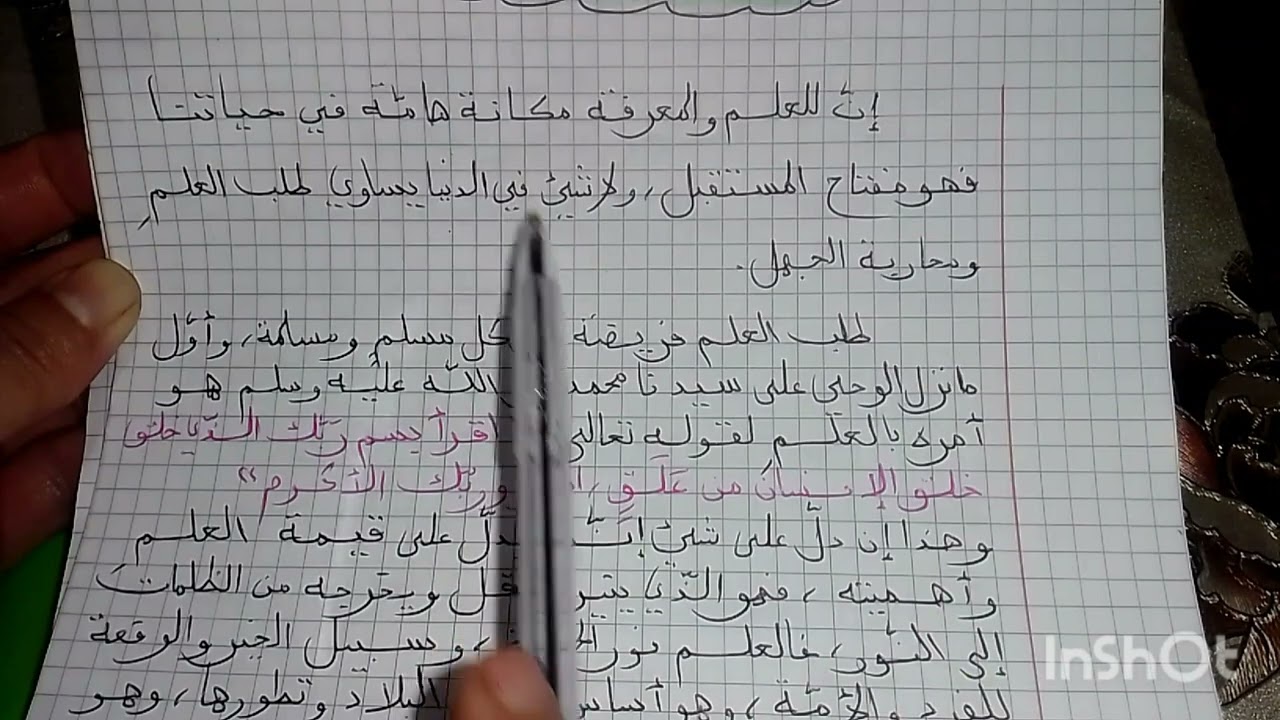 إنّ للعلم والمعرفة مكانة هامّة في حياتنا
فهو مفتاح المستقبل، ولا شيئ في الدنيا يساوي طلب العلمِ
ومحاربة الجهل.
طلب العلم فريضة كل مسلمٍ ومسلمة، وأوّل
ما نزل الوحي على سيدنا محمد اللّه عليه وسلم هو
أمره بالعلم لقوله تعالى اقرأ بسم ربّك الذّي خلق
خلق الإنسانَ من عَلَقٍ، وربّك الأكرم»
وهذا إن دلّ على شيئ إنّ يدلّ على قيمة العلم
وأهميته، فهو الذّي ينير ويخرجه من الظلمات
إلى النّور، فالعلم نور، وسبيل الخير والرفعة
للفرد والأمّة، وهو أساس البلاد وتطورها، وهو
InShOt